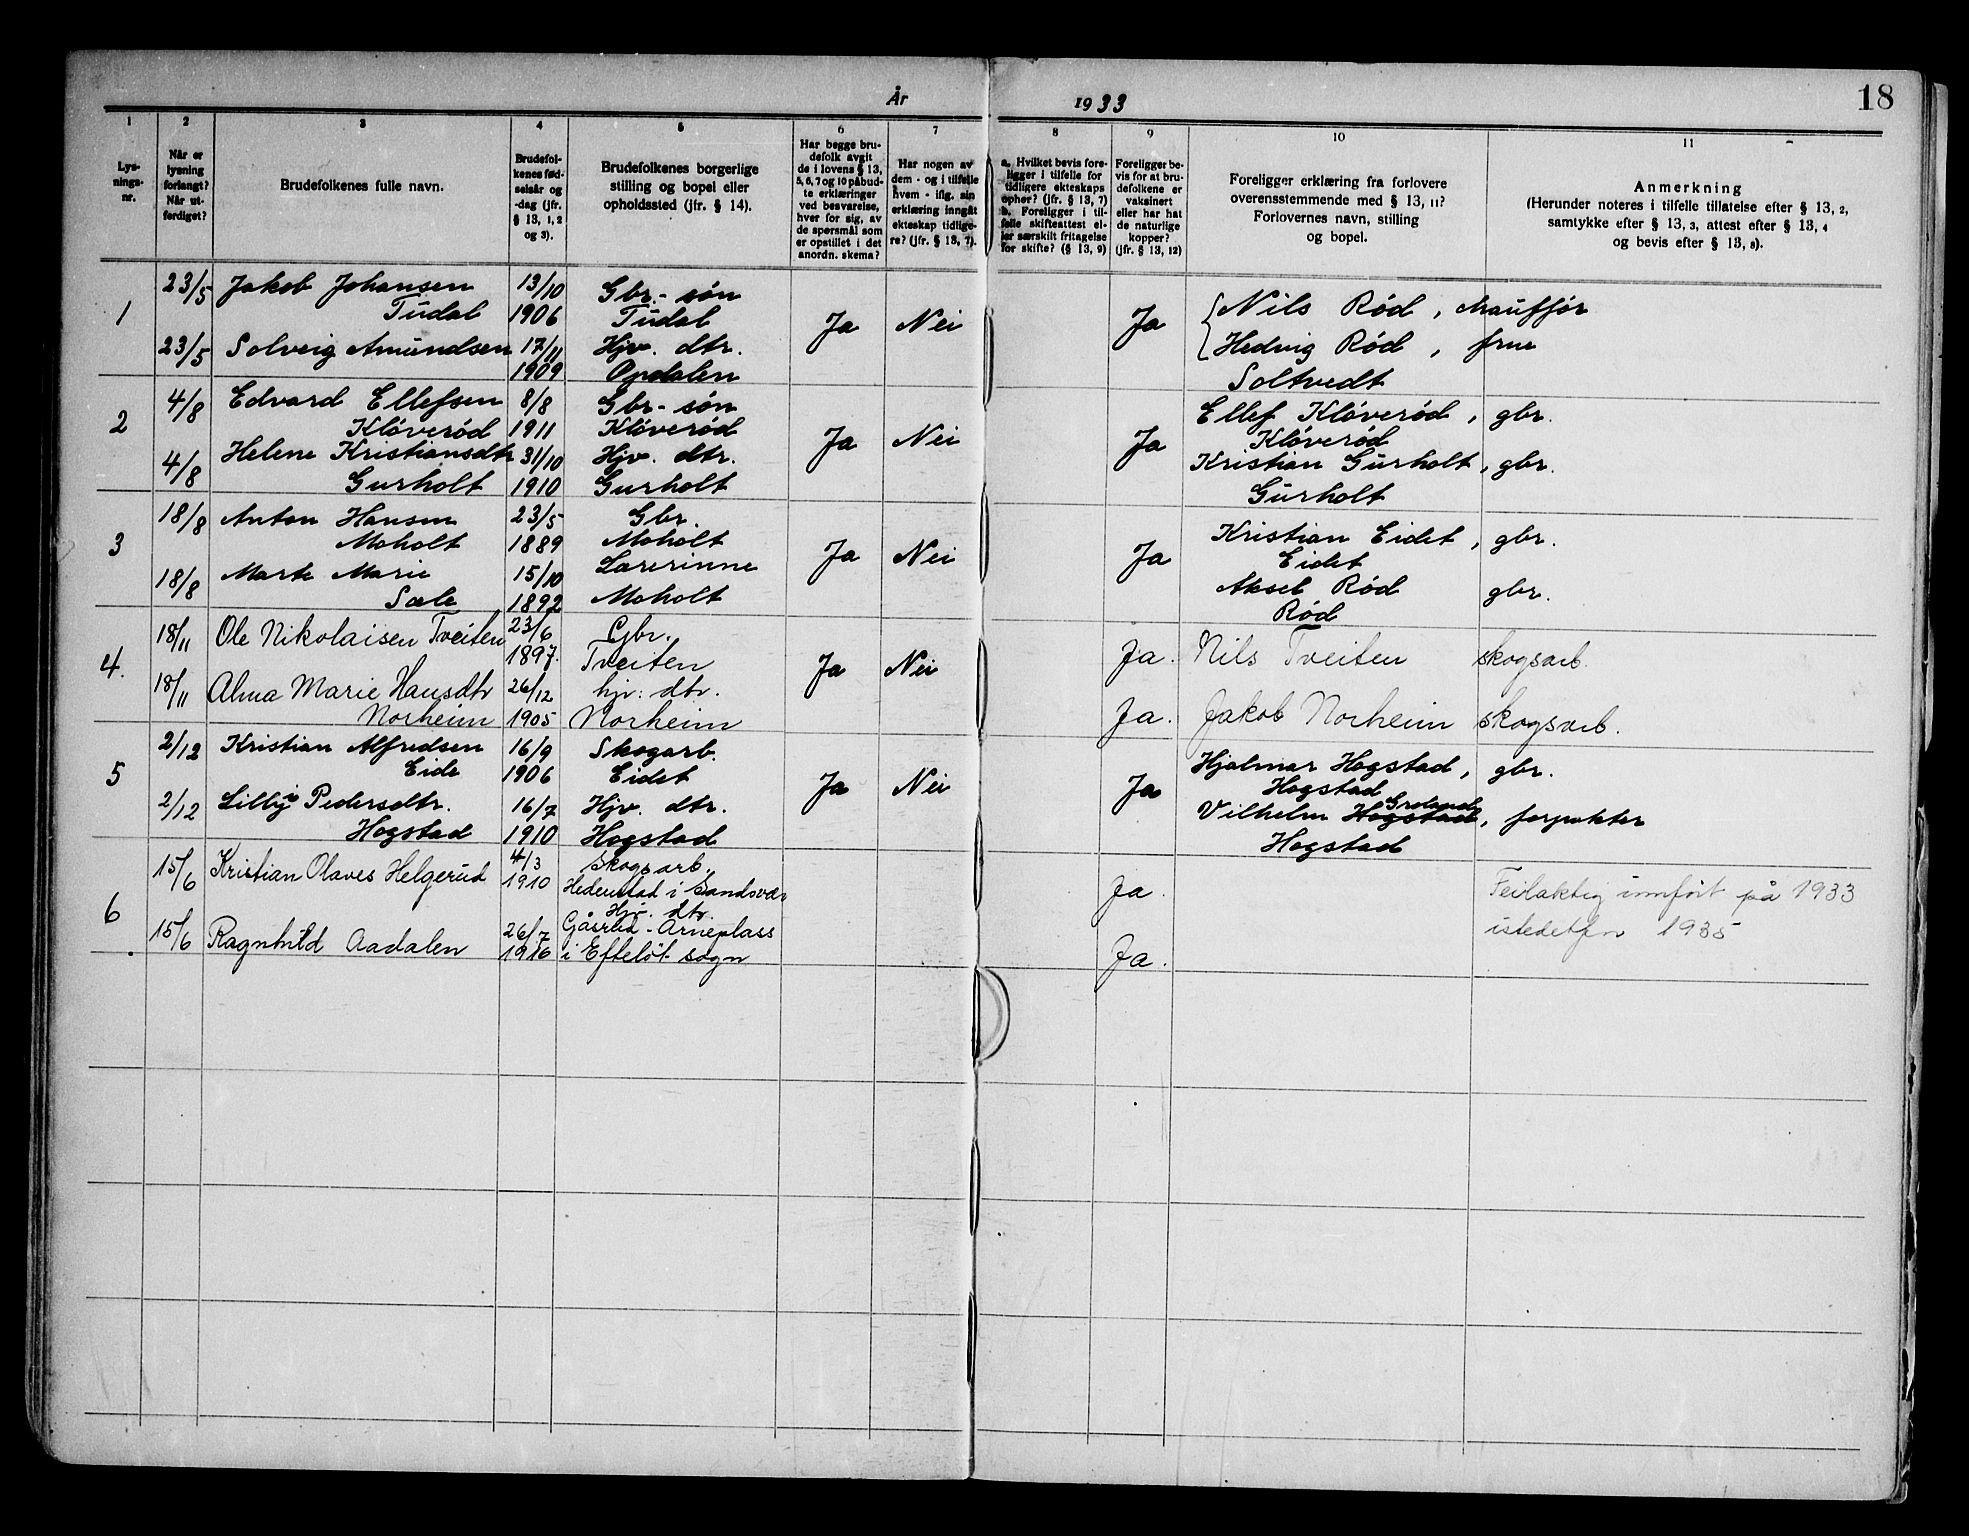 År 1933
18
1
2
3
4
5
6
7
8
9
10
11
Lys-
nings-
nr.
Når er
lysning
forlangt?
Når ut-
ferdiget?
Brudefolkenes fulle navn.
Brudefol-
kenes fød-
selsår og
-dag (jfr.
§ 13, 1, 2
og 3).
Brudefolkenes borgerlige
stilling og bopel eller
opholdssted (jfr. § 14).
Har begge bru-
defolk avgit
de i lovens § 13,
5, 6, 7 og 10 påbud-
te erklæringer
ved besvarelse,
hver for sig, av
de spørsmål som
er opstillet i det
anordn. skema?
Har nogen av
dem - og i tilfelle
hvem - iflg. sin
erklæring inngåt
ekteskap tidlige-
re? (jfr. § 13, 7).
a. Hvilket bevis fore-
ligger i tilfelle for
tidligere ekteskaps
ophør? (jfr. § 13, 7)
b. Foreligger i til-
felle skifteattest el-
ler særskilt fritagelse
for skifte? (§ 13, 9)
Foreligger be-
vis for at bru-
defolkene er
vaksinert
eller har hat
de naturlige
kopper?
(jfr. § 13, 12)
Foreligger erklæring fra forlovere
overensstemmende med § 13, 11?
Forlovernes navn, stilling
og bopel.
Anmerkning
(Herunder noteres i tilfelle tillatelse efter § 13, 2,
samtykke efter § 13, 3, attest efter § 13, 4
og bevis efter § 13, 8).
1
23/5 Jakob Johansen 13/10 Gbr.- søn
Tudal 1906 Tudal
Ja Nei Ja
Nils Rød, chauffør
23/5 Solveig Amundsen 17/11 Hjv. dtr.
Hedvig Rød, frue
1909 Opdalen
Soltvedt
2
4/8 Edvard Ellefsen 8/8 Gbr-søn
Kløverød 1911 Kløverød
Ja Nei Ja
Ellef Kløverød, gbr.
Kløverød
4/8 Helene Kristiansdtr 31/10 Hjv. dtr.
Gurholt 1910 Gurholt
Kristian Gurholt, gbr.
Gurholt
3
18/8 Anton Hansen 23/5 Gbr.
Moholt 1889 Moholt
Ja Nei Ja
Kristian Eidet, gbr.
Eidet
18/8 Marte Marie 15/10 Lærerinne
Sæle 1892 Moholt
Aksel Rød gbr.
Rød
4.
18/11 Ole Nikolaisen Tveiten 23/6 Gbr.
1897. Tveiten
Ja Nei
Ja. Nils Tveiten skogsarb.
18/11 Alma Marie Hansdtr 26/12 hjv: dtr.
Norheim 1905 Norheim
Ja. Jakob Norheim skogsarb.
5
2/12 Kristian Alfredsen 16/9 Skogarb.
Eide 1906 Eidet
Ja Nei Ja
Hjalmar Hogstad, gbr.
Hogstad
2/12 Lilly Pedersdtr. 16/7 Hjv. dtr.
Hogstad 1910 Hogstad
Vilhelm Hogstad, forpakter
Hogstad
6
15/6 Kristian Olaves Helgerud 4/3 Skogsarb.
1910 Hedenstad i Sandsvær
Ja.
Feilaktig innført på 1933
istedetfor 1935
Hjv. dtr.
15/6 Ragnhild Aadalen 26/7
1916 i Efteløt sogn
Ja.